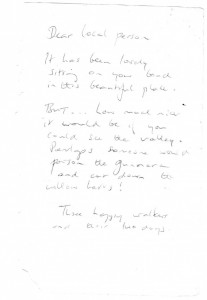 Dear local person
It has been lovely
sitting on your bench
in this beautiful place.
But... how much nicer
it would be if you
could see the valley.
Perhaps someone could
person the
and cut down the
!
Three happy walkers
and their two dogs.